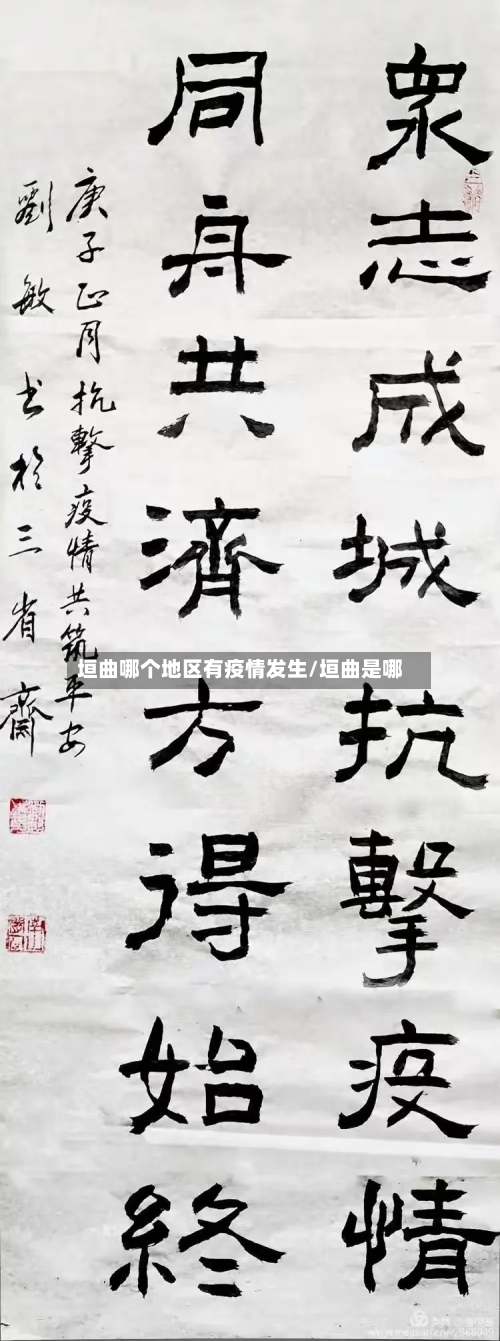 眾志成城抗擊疫情
同舟共濟方得始終
庚子正月抗擊疫情共筑平安
劉敏书於三省齋
垣曲哪个地区有疫情发生/垣曲是哪